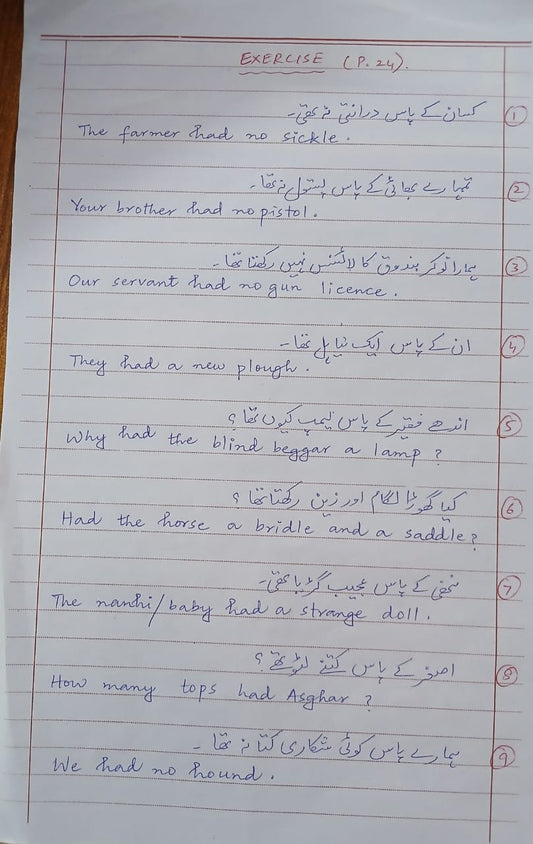 EXERCISE (P.24).
① کسان کے پاس درانتی نہ تھی۔
The farmer had no sickle.
② تمہارے بھائی کے پاس پستول نہ تھا۔
Your brother had no pistol.
③ ہمارا نوکر بندوق کا لائسنس نہیں رکھتا تھا۔
Our servant had no gun licence.
④ ان کے پاس ایک نیا ہل تھا۔
They had a new plough.
⑤ اندھے فقیر کے پاس لیمپ کیوں تھا؟
Why had the blind beggar a lamp?
⑥ کیا گھوڑا لگام اور زین رکھتا تھا؟
Had the horse a bridle and a saddle?
⑦ ننھی کے پاس عجیب گڑیا تھی۔
The nanhi/baby had a strange doll.
⑧ اصغر کے پاس کتنے لٹو تھے؟
How many tops had Asghar?
⑨ ہمارے پاس کوئی شکاری کتا نہ تھا۔
We had no hound.